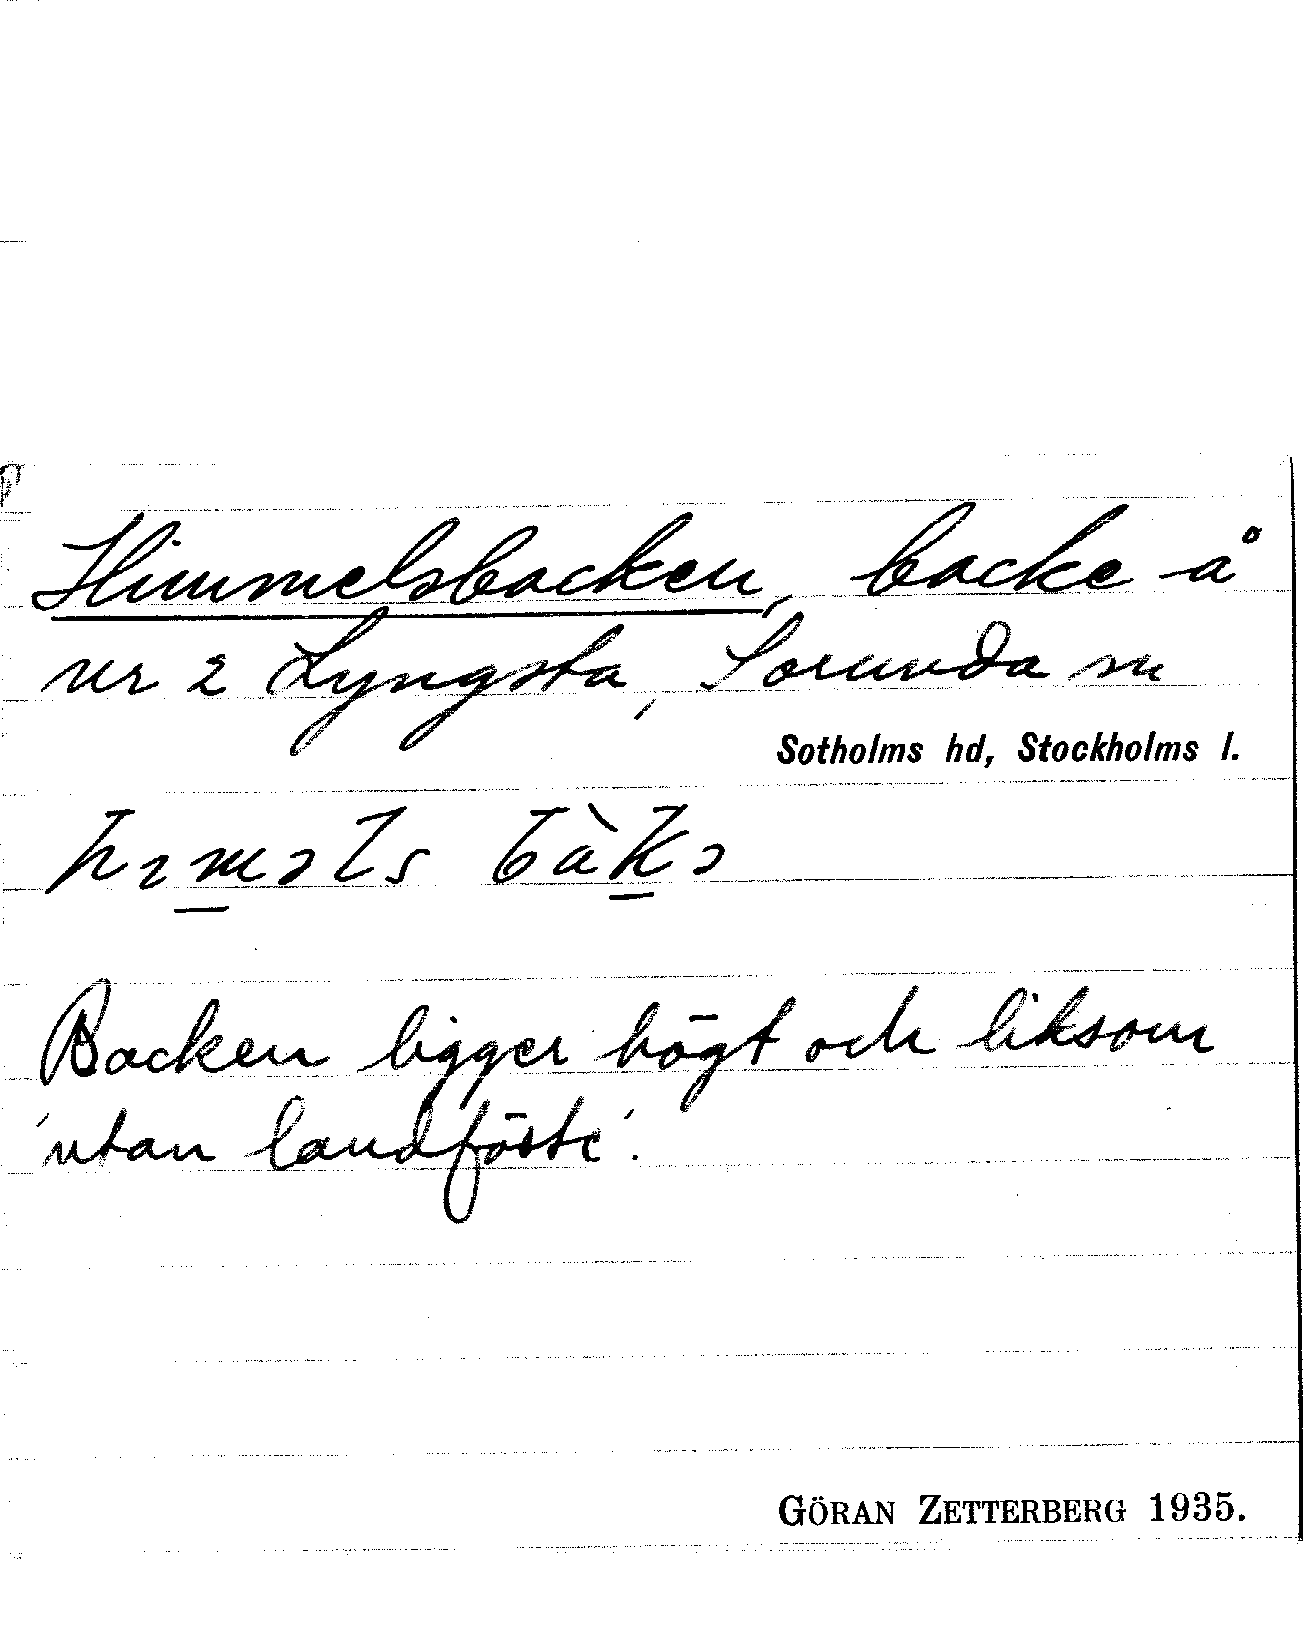 Himmelsbacken, backe å
nr 2 Lyngsta, Sorunda sn
Sotholms hd, Stockholms l.
hɪməls bàkə
Backen ligger högt och liksom
'utan landfäste'.
GÖRAN ZETTERBERG 1935.